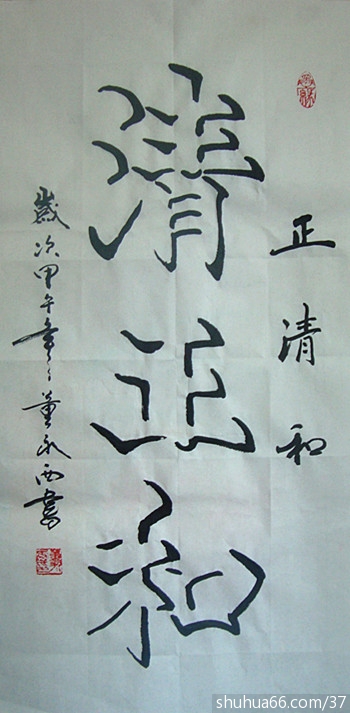 正清和
清正和
歲次甲午年董永西書
shuhua66.com/37